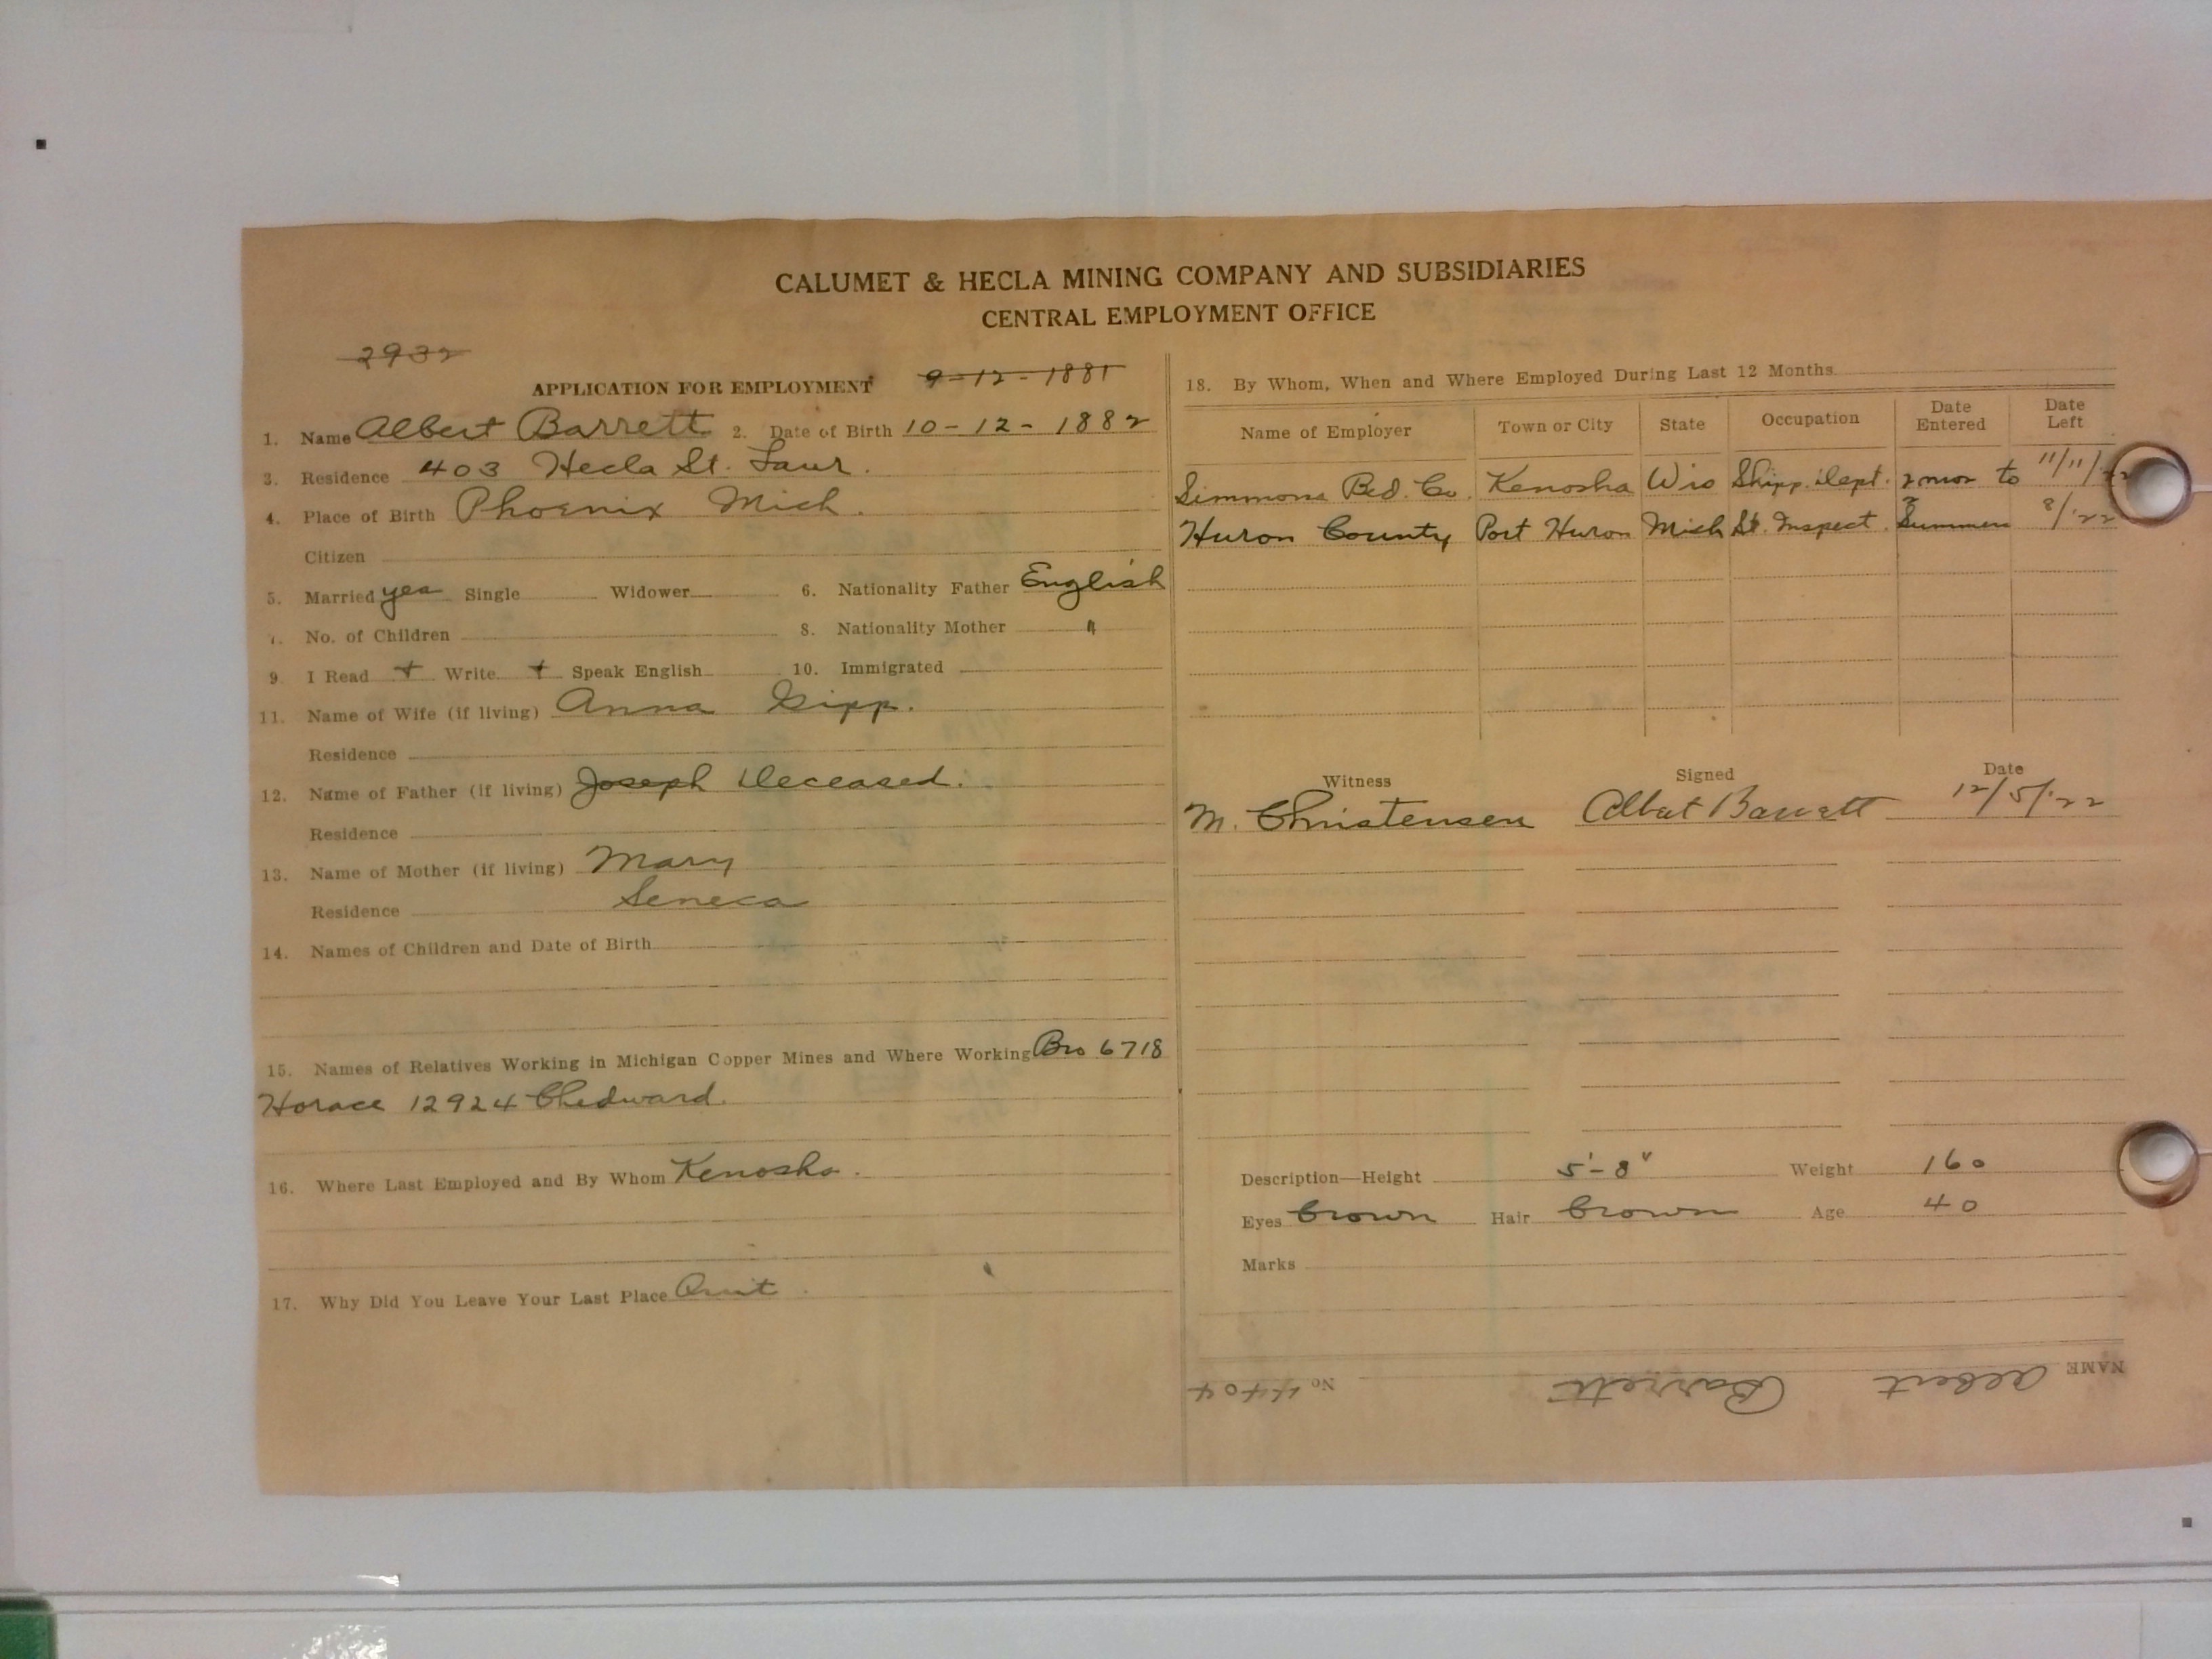 CALUMET & HECLA MINING COMPANY AND SUBSIDIARIES
CENTRAL EMPLOYMENT OFFICE
2932
APPLICATION FOR EMPLOYMENT 9-12-1881
1. Name Albert Barrett 2. Date of Birth 10-12-1882
3. Residence 403 Hecla St. Laur.
4. Place of Birth Phoenix Mich.
Citizen
5. Married yes Single Widower 6. Nationality Father English
7. No. of Children 8. Nationality Mother "
9. I Read + Write + Speak English 10. Immigrated
11. Name of Wife (if living) Anna Gipp.
Residence
12. Name of Father (if living) Joseph Deceased.
Residence
13. Name of Mother (if living) Mary
Residence Seneca
14. Names of Children and Date of Birth
15. Names of Relatives Working in Michigan Copper Mines and Where Working Bro 6718
Horace 12924 Chedward.
16. Where Last Employed and By Whom Kenosha.
17. Why Did You Leave Your Last Place Quit.
18. By Whom, When and Where Employed During Last 12 Months
Name of Employer Town or City State Occupation Date Entered Date Left
Simmons Bed. Co. Kenosha Wis Shipp. Dept. 2 mos to 11/11/22
Huron County Port Huron Mich St. Inspect. Summer 8/'22
Witness Signed Date
M. Christensen Albert Barrett 12/5/'22
Description—Height 5'-8" Weight 160
Eyes brown Hair brown Age 40
Marks
NAME Albert Barrett No 4404